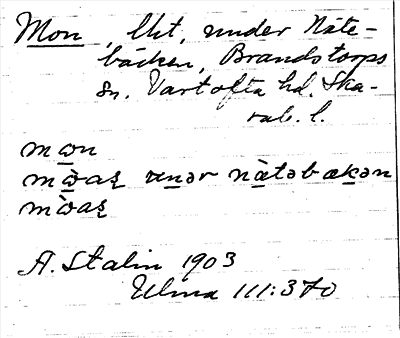 Mon, lht, under Näte-
bäcken, Brandstorps
sn. Vartofta hd. Ska-
rab. l.
mo̲n
mò̲aꝛ u̲nər nà̲təbæk̲ən
mòaꝛ
A. Stalin 1903
Ulma 111:370